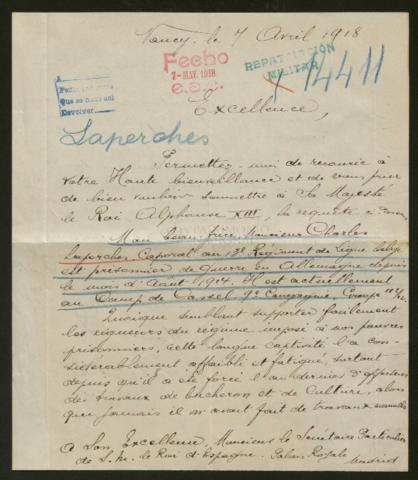 Nancy, le 7 Avril 1918
Fecho
7 - MAY. 1918
REPATRIACION
MILITAR
14411
Devolver
Excellence,
Laperches
Permettez-moi de recourir à
Votre Haute bienveillance et de vous prier
de bien vouloir soumettre à Sa Majesté
le Roi Alphonse XIII, la requête
Mon beau frère Monsieur Charles
Laperches Caporal au 13e Régiment de Ligne belge
est prisonnier de guerre en Allemagne depuis
le mois d'Août 1914. Il est actuellement
au Camp de Cassel 9e Compagnie,
Quoique semblant supporter facilement
les rigueurs du régime imposé à nos pauvres
prisonniers, cette longue captivité l'a con-
sidérablement affaibli et fatigué, surtout
depuis qu'il a été forcé l'an dernier d'effectuer
des travaux de bûcheron et de culture, alors
que jamais il n'avait fait de travaux manuels
à Son Excellence, Monsieur le Secrétaire Particulier
de S.M. le Roi d'Espagne. Palais Royale
Madrid